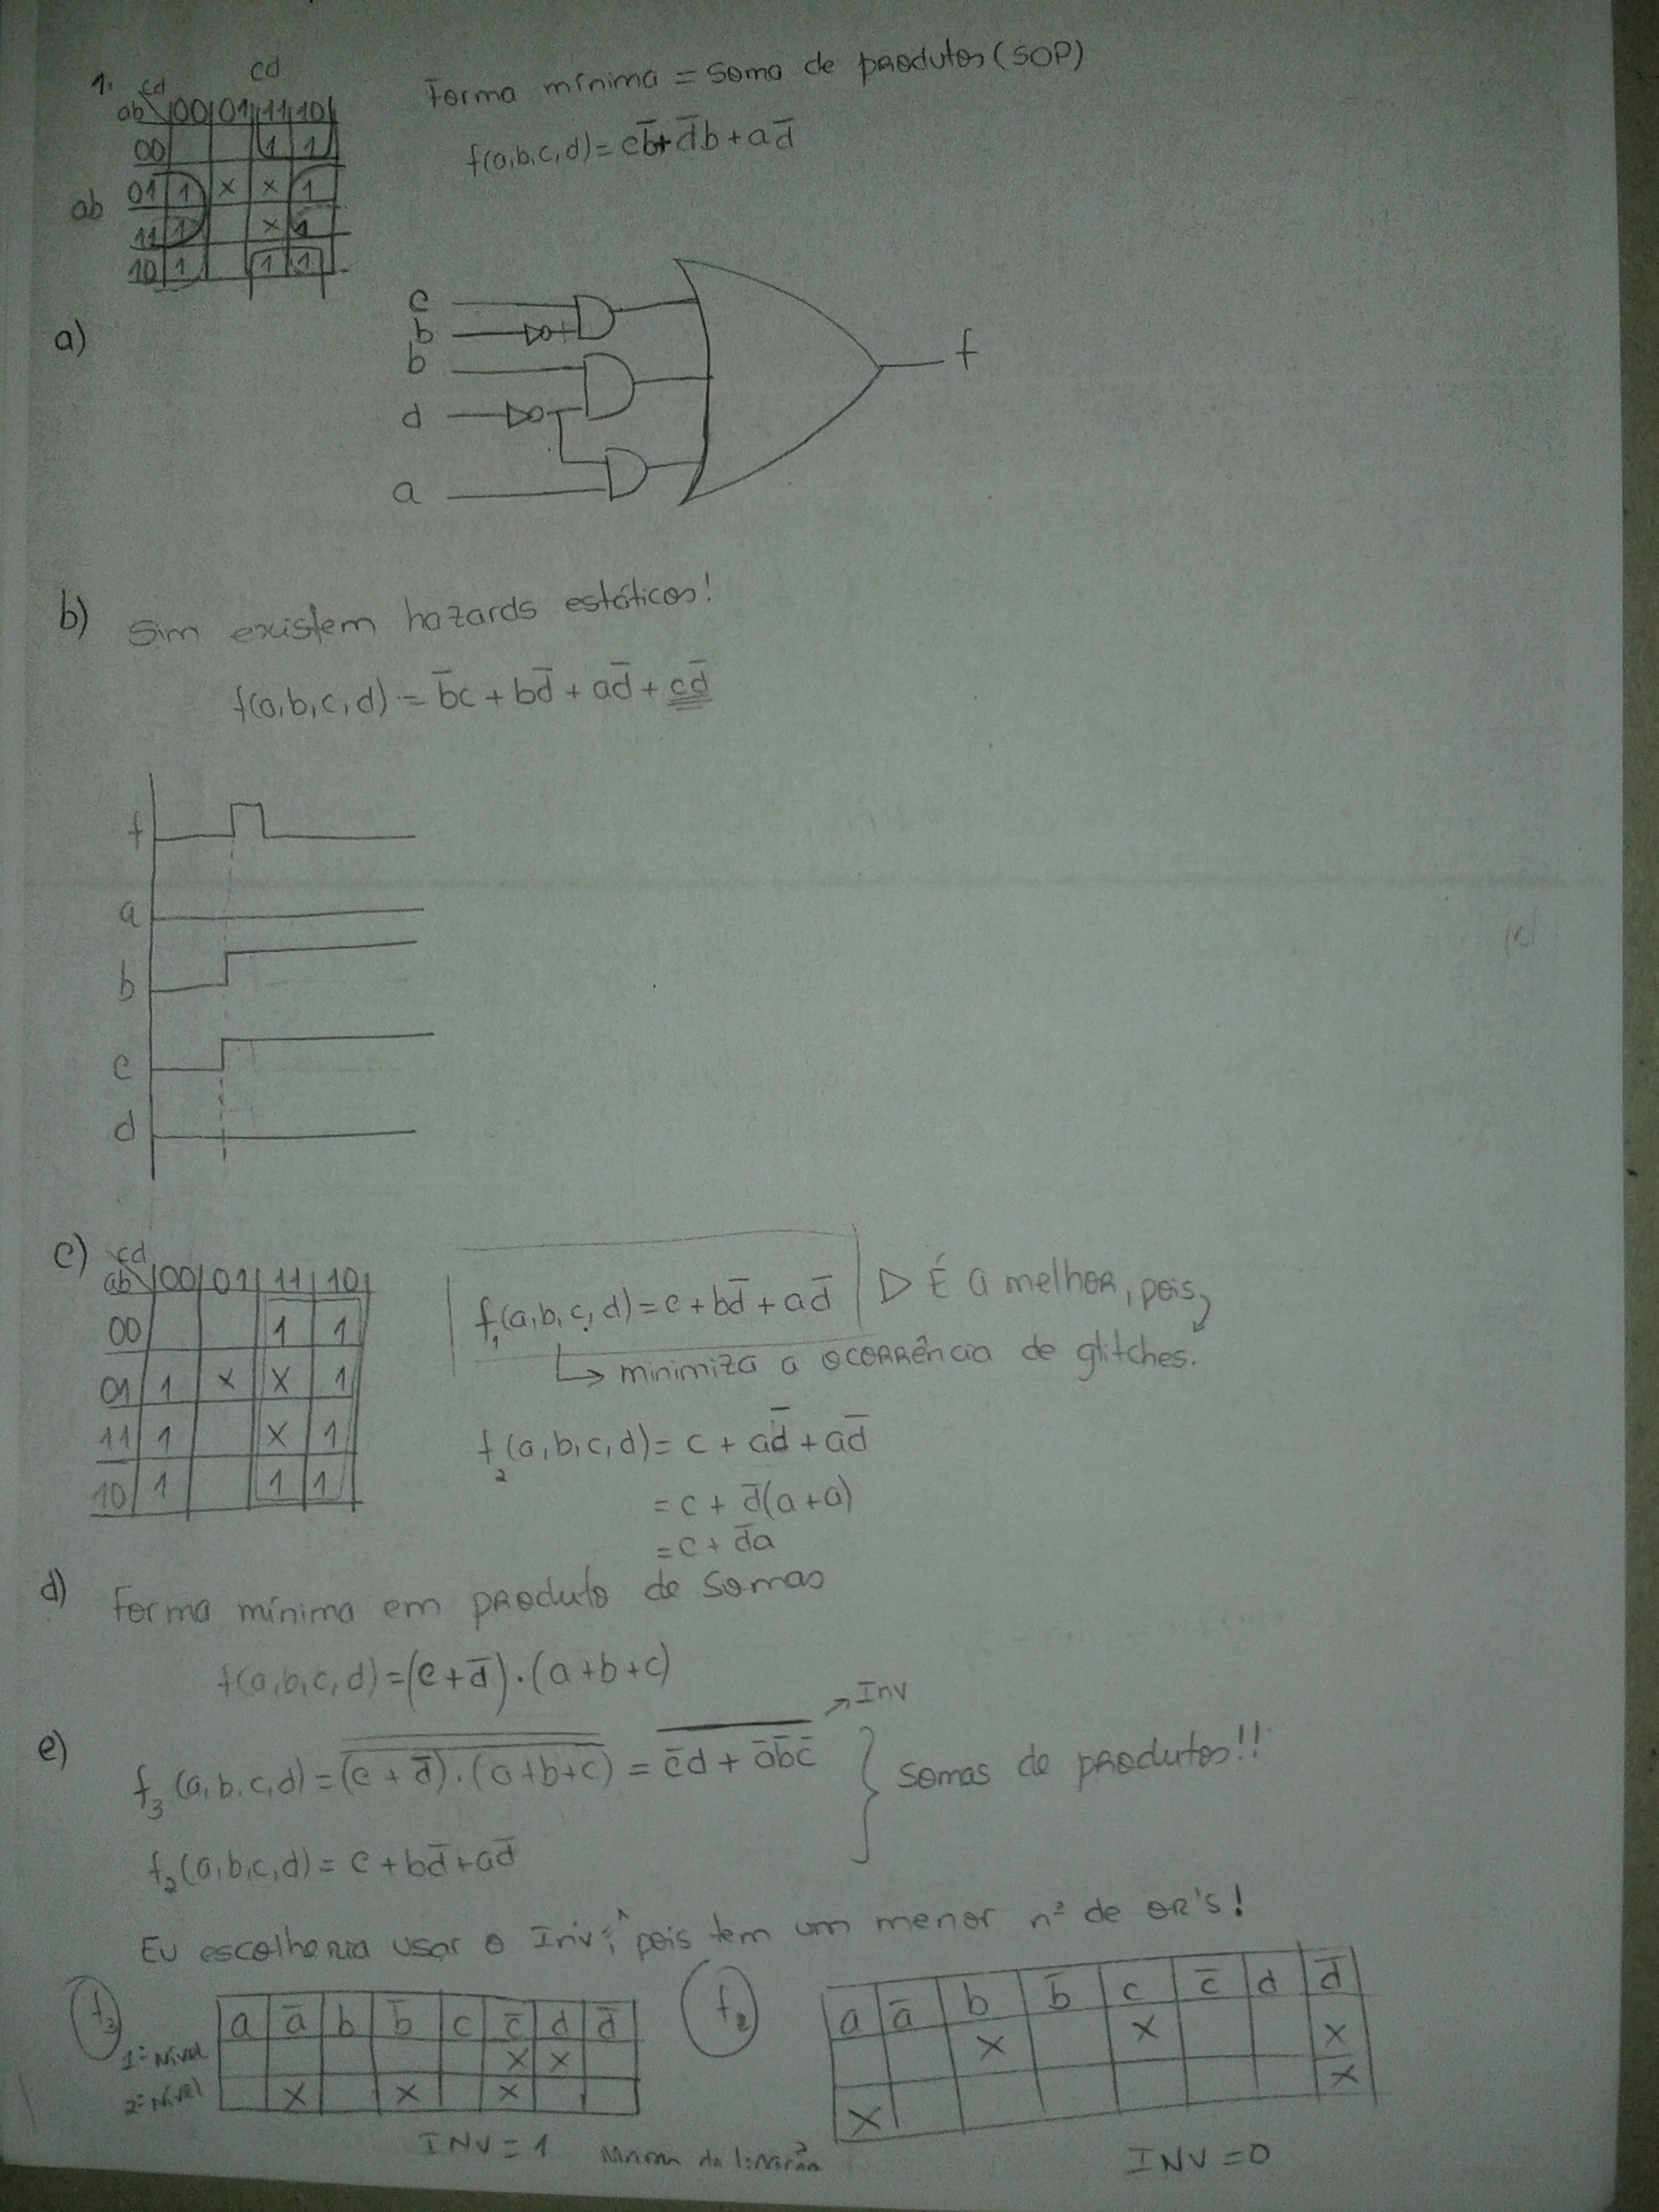 1.
cd
cd
ab 00 01 11 10
00 1 1
ab
01 1 x x 1
11 1 x 1
10 1 1 1
Forma mínima = Soma de produtos (SOP)
f(a,b,c,d) = cb̅ + d̅b + ad̅
a)
c
b
b
d
a
f
b) Sim existem hazards estáticos!
f(a,b,c,d) = b̅c + bd̅ + ad̅ + cd̅
f
a
b
c
d
c)
cd
ab 00 01 11 10
00 1 1
01 1 x x 1
11 1 x 1
10 1 1 1
f₁(a,b,c,d) = c + bd̅ + ad̅ ▷ É a melhor, pois
↳ minimiza a ocorrência de glitches.
f₂(a,b,c,d) = c + ad̅ + ad̅
= c + d̅(a+a)
= c + d̅a
d) Forma mínima em produto de Somas
f(a,b,c,d) = (c + d̅).(a+b+c)
e)
→ Inv
f₃(a,b,c,d) = (c + d̅).(a+b+c) = c̅d + a̅b̅c̅ } Somas de produtos!!
f₂(a,b,c,d) = c + bd̅ + ad̅
Eu escolheria usar o Inv=1, pois tem um menor nº de OR's!
f₃
a a̅ b b̅ c c̅ d d̅
1º Nível x x
2º Nível x x x
INV = 1
f₂
a a̅ b b̅ c c̅ d d̅
x x x
x x
INV = 0